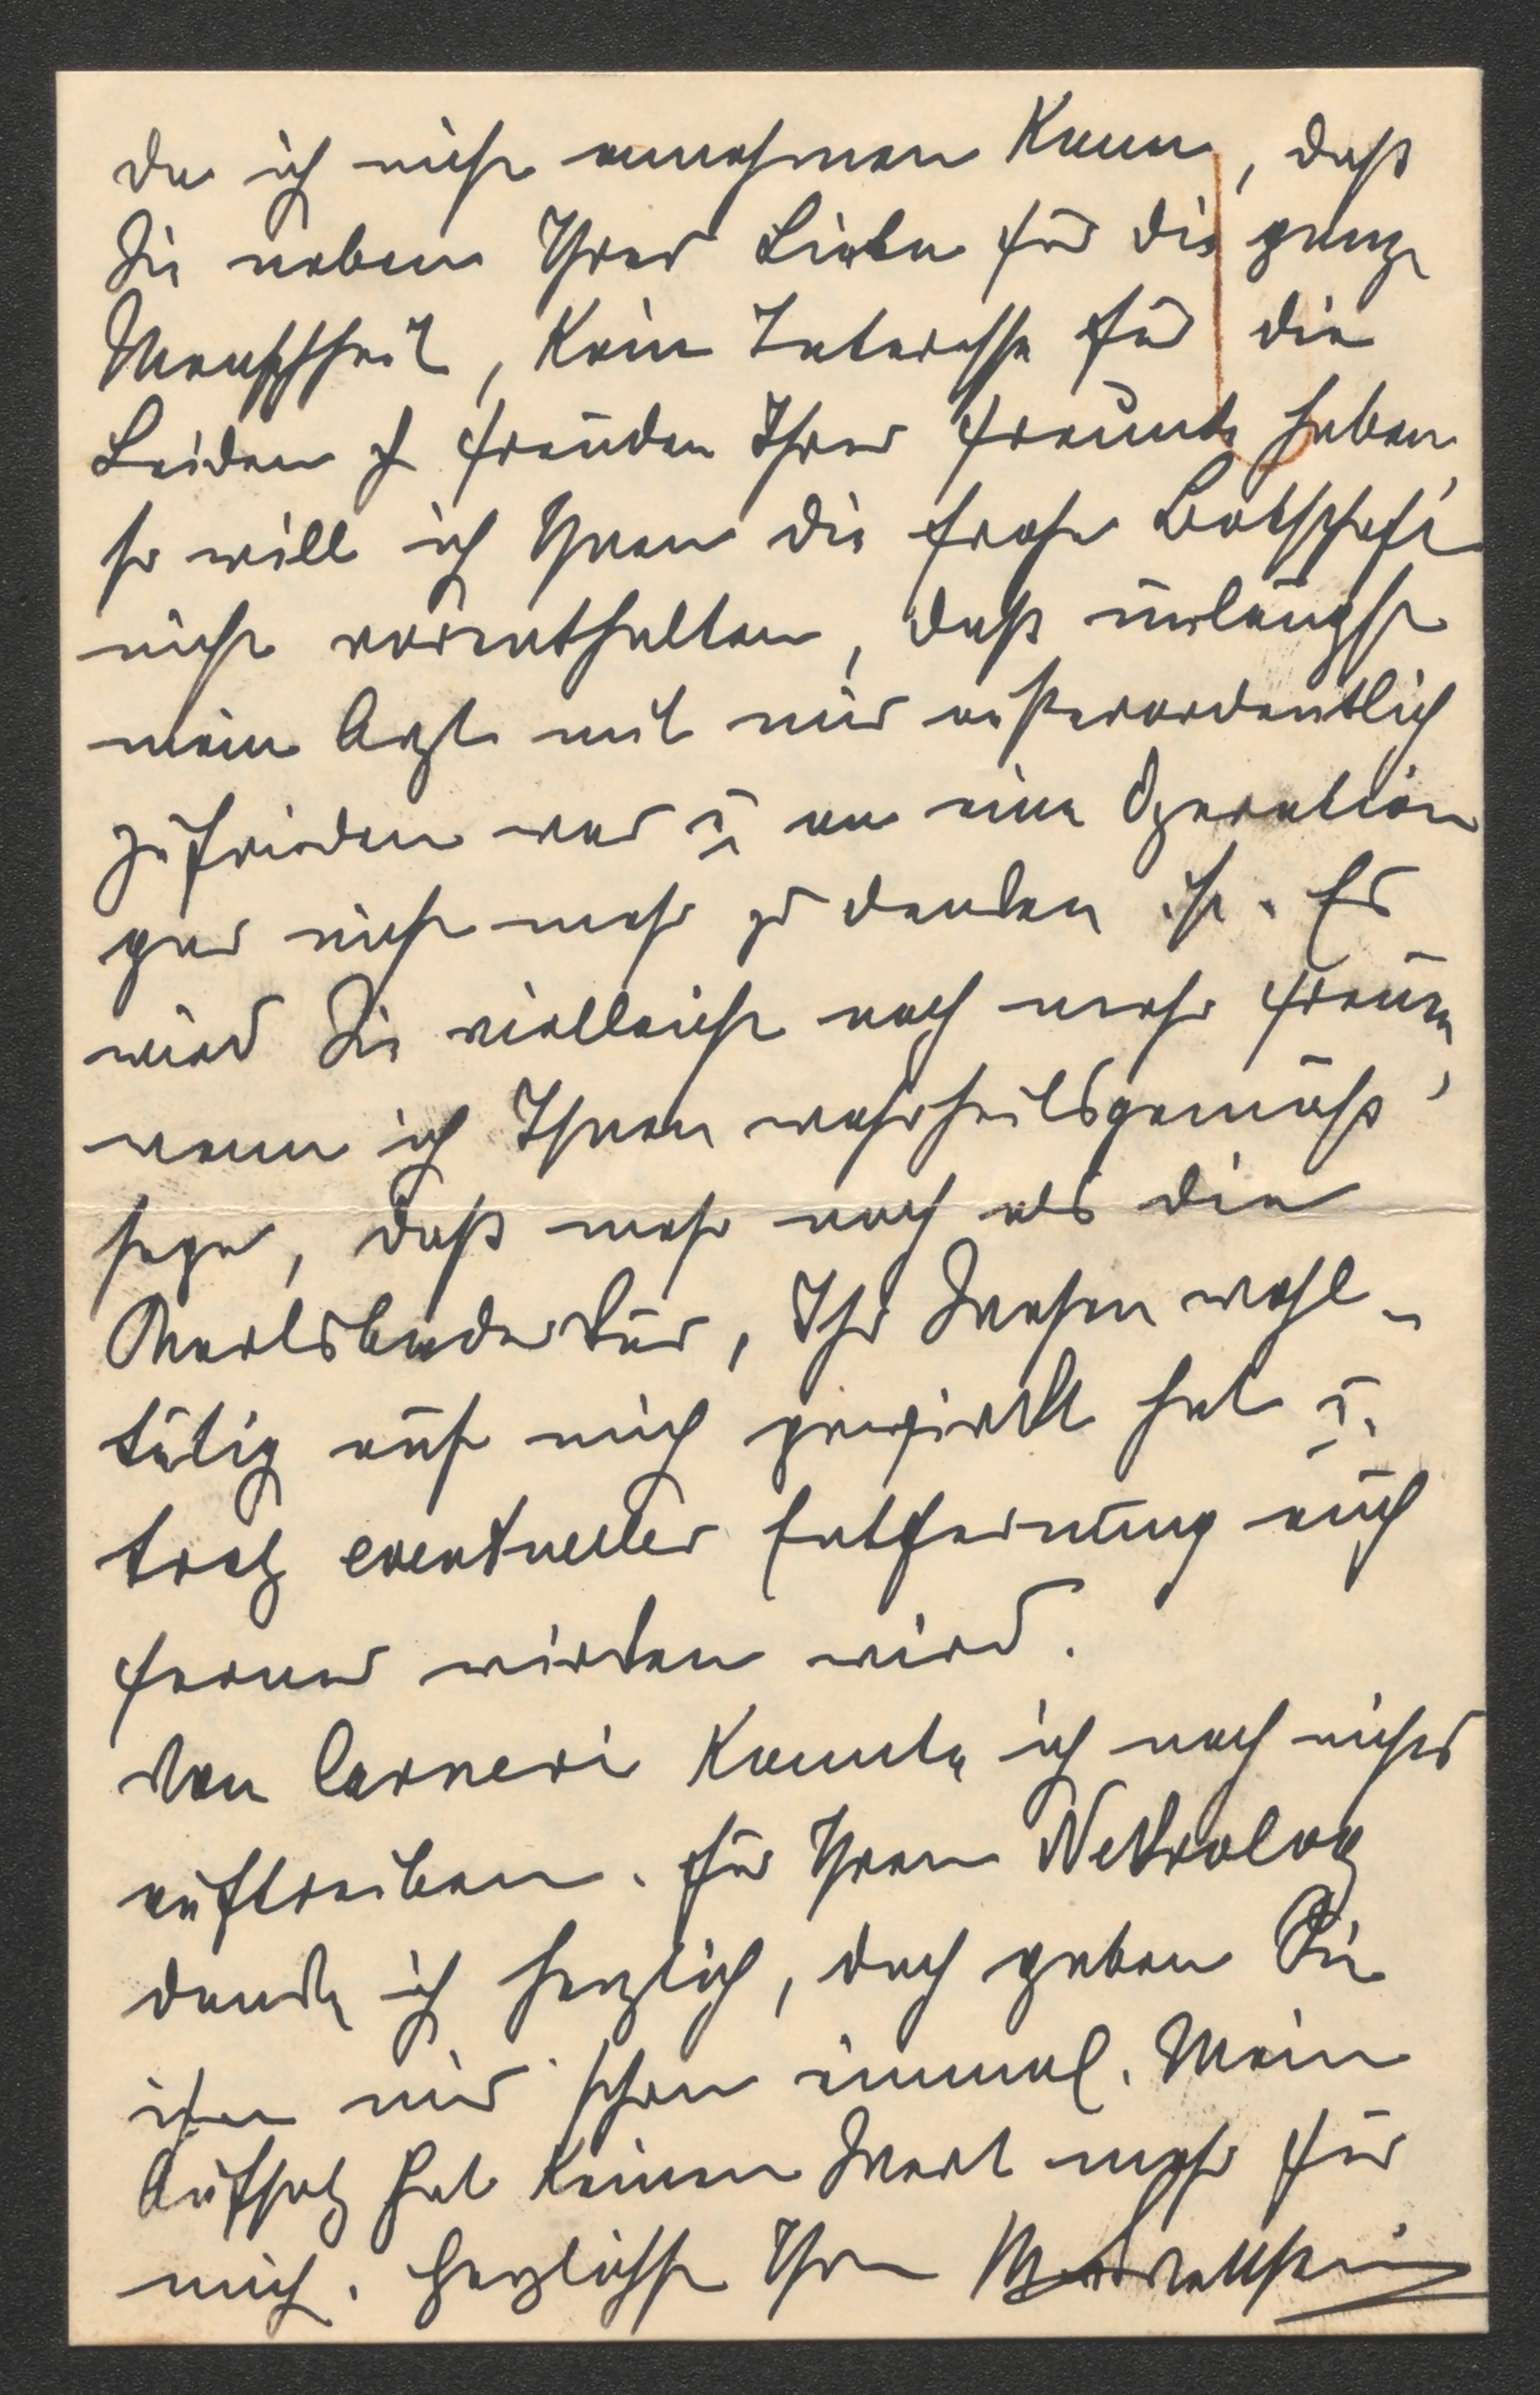 da ich nicht annehmen kann, daß
Sie neben Ihrer Liebe für die ganze
Menschheit, kein Interesse für die
Leiden & Freuden Ihrer Freunde haben,
so will ich Ihnen die frohe Botschaft
nicht vorenthalten, daß unlängst
mein Arzt mit mir außerordentlich
zufrieden war u an eine Operation
gar nicht mehr zu denken ist. Es
wird Sie vielleicht noch mehr freuen,
wenn ich Ihnen wahrheitsgemäß
sage, daß mehr noch als die
Karlsbaderkur, Ihr Wesen wohl-
tätig auf mich gewirkt hat u.
trotz eventueller Entfernung auch
ferner wirken wird.
Von Carneri konnte ich noch nichts
auftreiben. Für Ihren Nekrolog
danke ich herzlich, doch gaben Sie
ihn mir schon einmal. Mein
Aufsatz hat keinen Wert mehr für
mich. Herzlichst Ihre